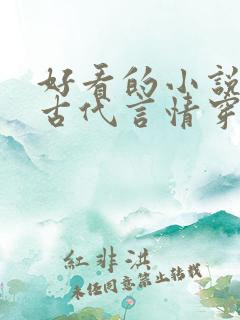 好看的小說
古代言情穿
紅非淇
未經同意禁止轉載